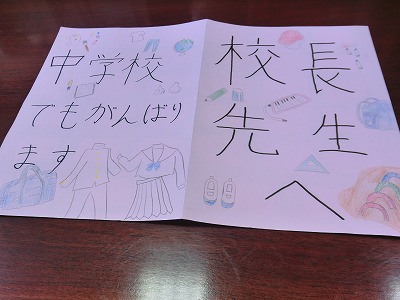 校長
先生
へ
中学校
でもがんばり
ます